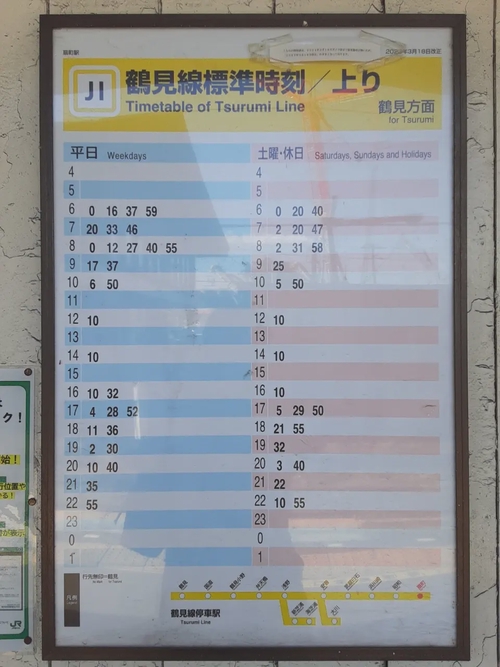 扇町駅
JI
鶴見線標準時刻／上り
Timetable of Tsurumi Line
鶴見方面
for Tsurumi
平日 Weekdays 土曜・休日 Saturdays, Sundays and Holidays
4 4
5 5
6 0 16 37 59 6 0 20 40
7 20 33 46 7 2 20 47
8 0 12 27 40 55 8 2 31 58
9 17 37 9 25
10 6 50 10 5 50
11 11
12 10 12 10
13 13
14 10 14 10
15 15
16 10 32 16 10
17 4 28 52 17 5 29 50
18 11 36 18 21 55
19 2 30 19 32
20 10 40 20 3 40
21 35 21 22
22 55 22 10 55
23 23
0 0
1 1
凡例
行先無印＝鶴見
鶴見線停車駅
Tsurumi Line
ク！
始！
JR